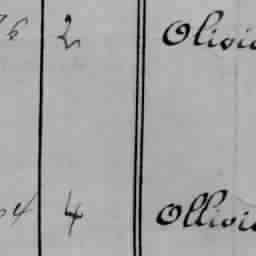 76 2 Olivie
04 4 Ollivie